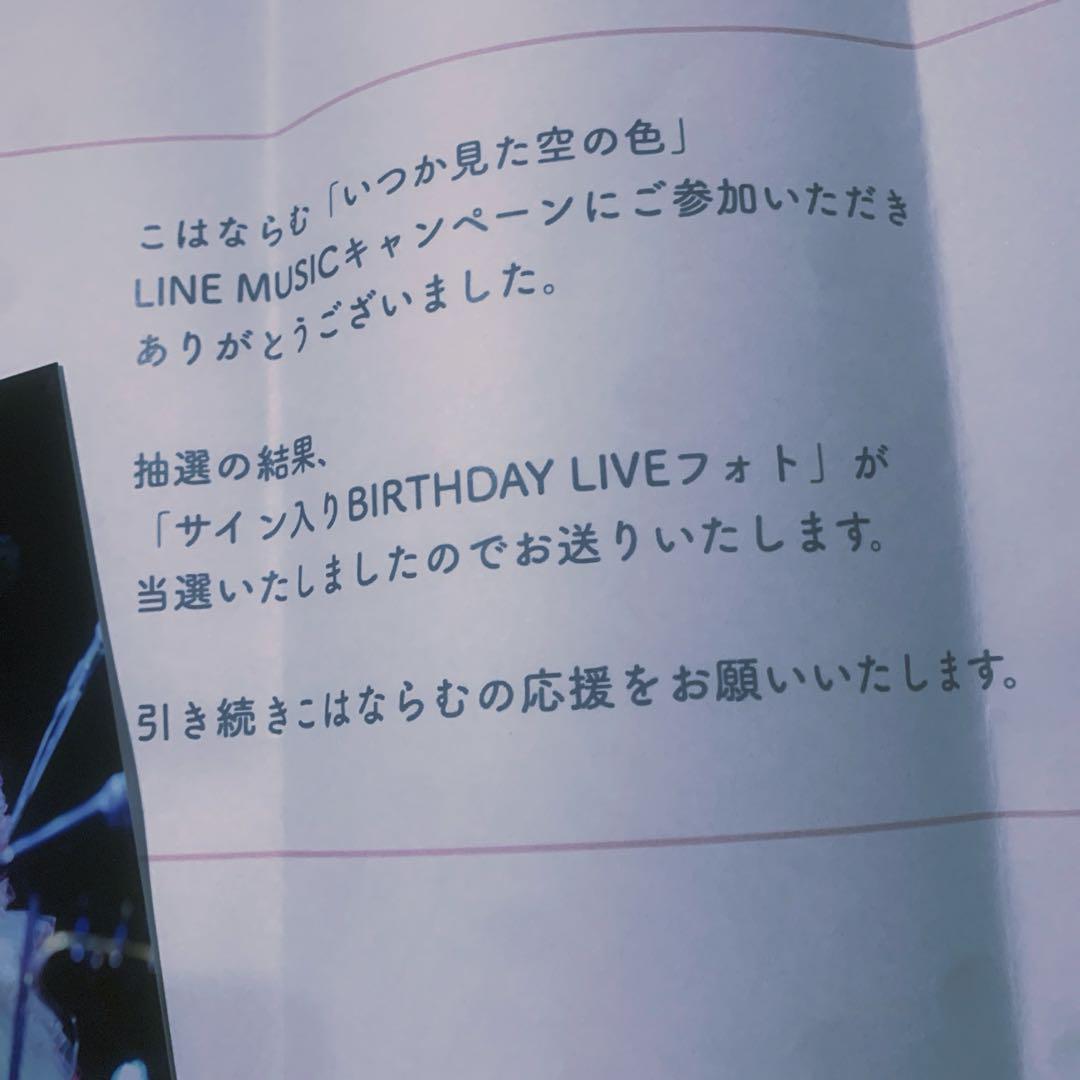 こはならむ「いつか見た空の色」
LINE MUSICキャンペーンにご参加いただき
ありがとうございました。
抽選の結果、
「サイン入りBIRTHDAY LIVEフォト」が
当選いたしましたのでお送りいたします。
引き続きこはならむの応援をお願いいたします。